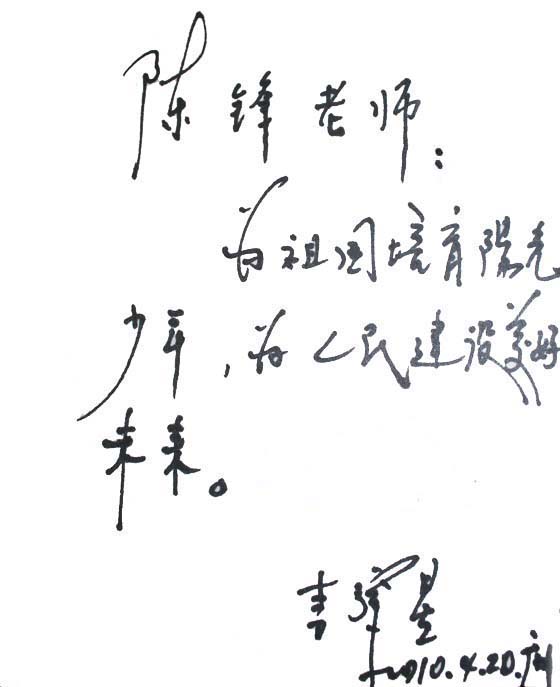 陈锋老师:
为祖国培育阳光
少年,为人民建设美好
未来。
2010.4.20.